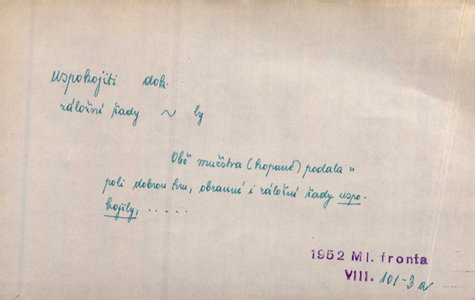 uspokojiti dok.
záložní řady ~ ly
Obě mužstva (kopané) podala "
poli dobrou hru, obranné i záložní řady uspo-
kojily, .....
1952 Ml. fronta
VIII. 101-3